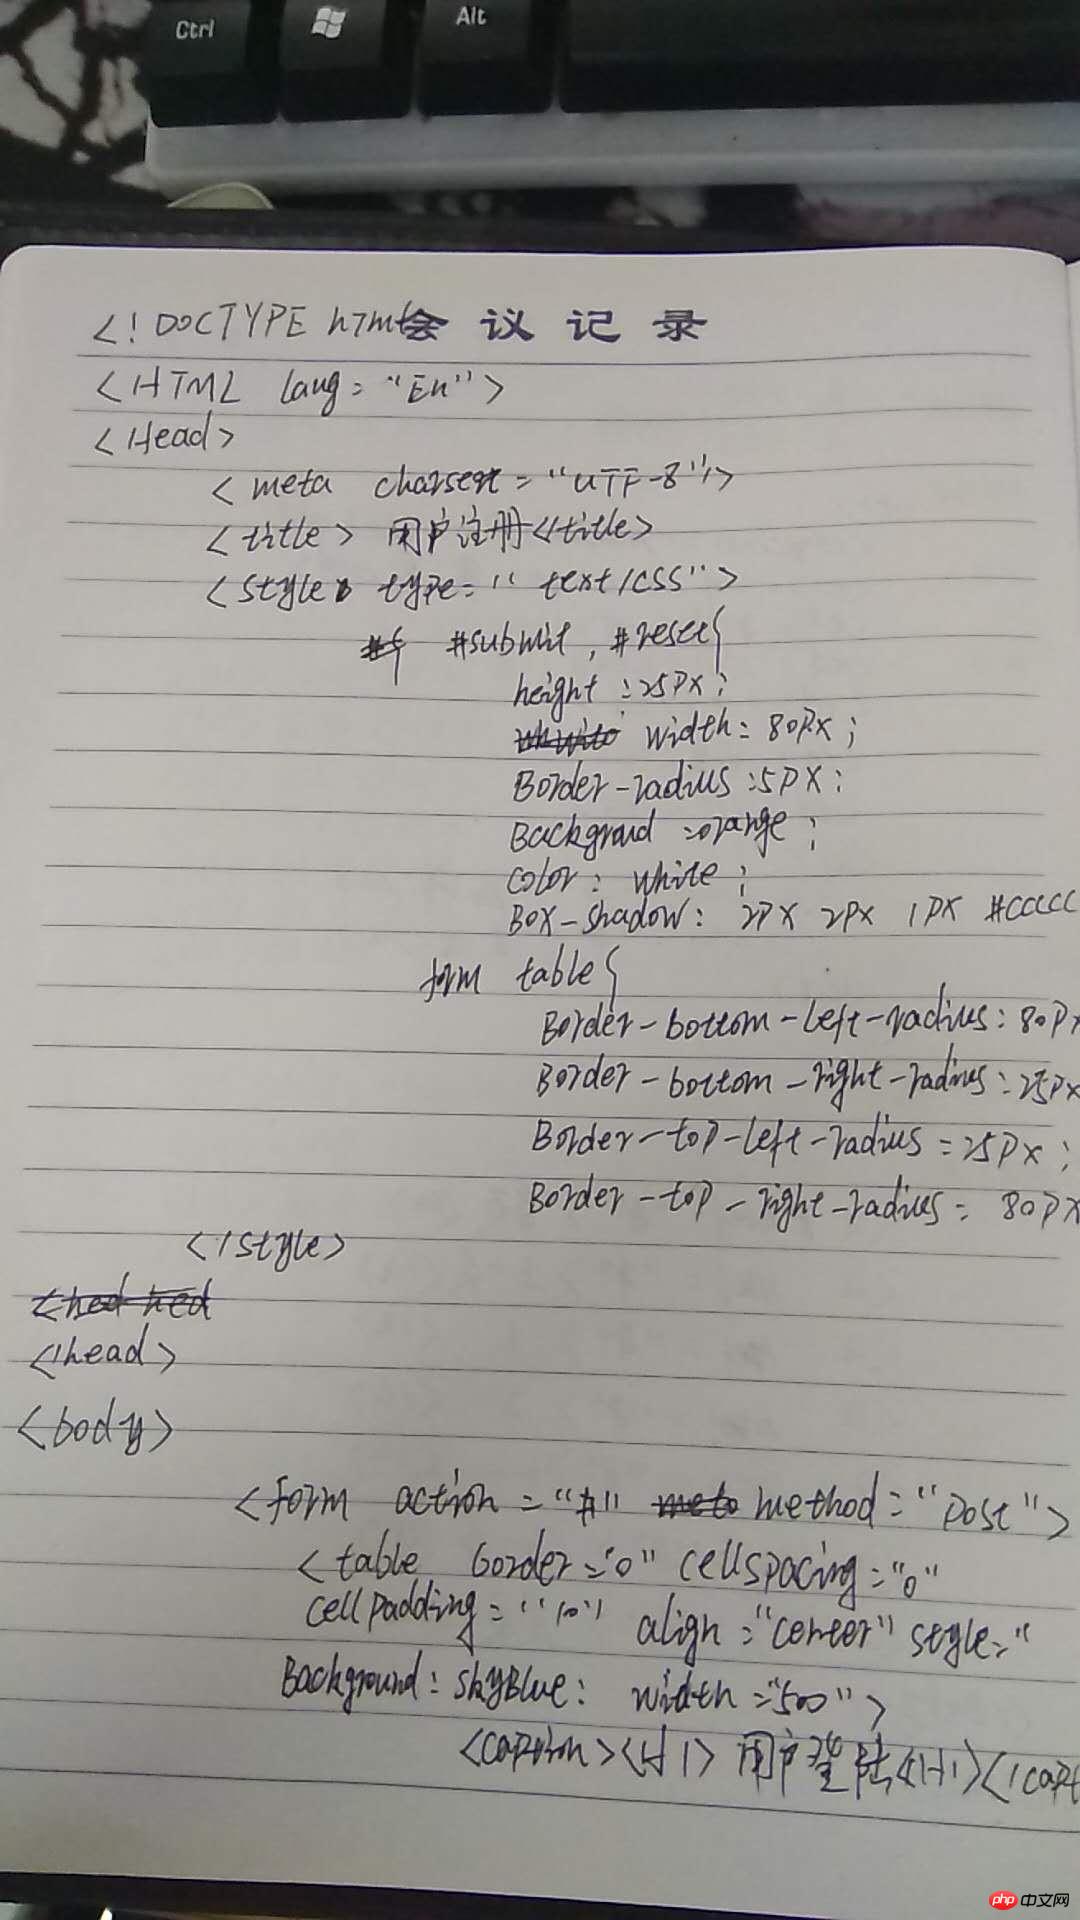 Ctrl Alt
<!DOCTYPE html 会议记录
<HTML lang="En">
<Head>
<meta charset="UTF-8"/>
<title>用户注册</title>
<style type="text/css">
#submit, #reset{
height:25px;
width:80px;
Border-radius:5px;
Backgroud:orange;
color:white;
Box-shadow: 2px 2px 1px #cccc
form table{
Border-bottom-left-radius:80px
Border-bottom-right-radius:25px
Border-top-left-radius:25px;
Border-top-right-radius:80px
</style>
</head>
<body>
<form action="#" method="post">
<table border="0" cellspacing="0"
cellpadding="10" align="center" style="
Background:skyBlue: width="500">
<caption><H1>用户登陆</H1></capt
php中文网